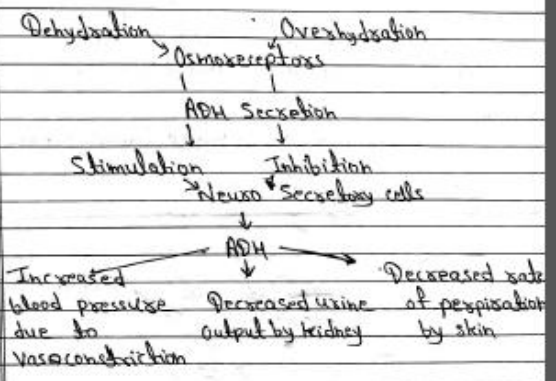 Dehydration Overhydration
Osmoreceptors
ADH Secretion
Stimulation Inhibition
Neuro Secretory cells
ADH
Increased blood pressure due to vasoconstriction
Decreased urine output by kidney
Decreased rate of perspiration by skin